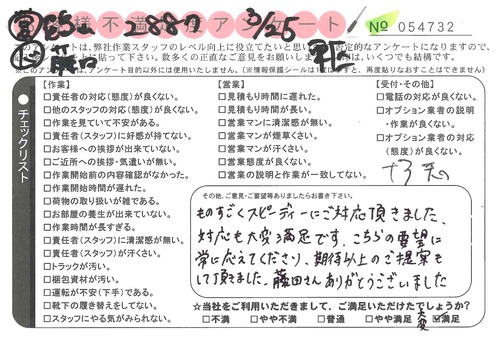 お客様不満足度アンケート
2887
3/25
No 054732
このアンケートは、弊社作業スタッフのレベル向上に役立てたいと思い
否定的なアンケートになりますので、
に貼って下さい。数多くの正直なご意見をお願いします
は、いくつでも結構です。
このアンケートは、アンケート目的以外には使用いたしません。(※情報保護シールは1度はすと、再度貼りなおすことはできません)
藤田
チェックリスト
【作業】
□責任者の対応(態度)が良くない。
□他のスタッフの対応(態度)が良くない。
□作業を見ていて不安がある。
□責任者(スタッフ)に好感が持てない。
□お客様への挨拶が出来ていない。
□ご近所への挨拶・気遣いが無い。
□作業開始前の内容確認がなかった。
□作業開始時間が遅れた。
□荷物の取り扱いが雑である。
□お部屋の養生が出来ていない。
□作業時間が長すぎる。
□責任者(スタッフ)に清潔感が無い。
□責任者(スタッフ)が汗くさい。
□トラックが汚い。
□梱包資材が汚い。
□運転が不安(下手)である。
□靴下の履き替えをしてない。
□スタッフにやる気がみられない。
【営業】
□見積もり時間に遅れた。
□見積もり時間が長い。
□営業マンに清潔感が無い。
□営業マンが煙草くさい。
□営業マンが汗くさい。
□営業態度が良くない。
□営業の説明と作業が一致してない。
【受付・その他】
□電話の対応が良くない。
□オプション業者の説明
・作業が良くない。
□オプション業者の対応
(態度)が良くない。
その他、ご意見・ご要望等ありましたらお書き下さい。
ものすごくスピーディーにご対応頂きました。
対応も大変満足です。こちらの要望に
常に応えてくださり、期待以上のご提案も
して頂きました。藤田さんありがとうございました
☆当社をご利用いただきまして、ご満足いただけたでしょうか?
大変
□不満 □やや不満 □普通 □やや満足 ☑満足